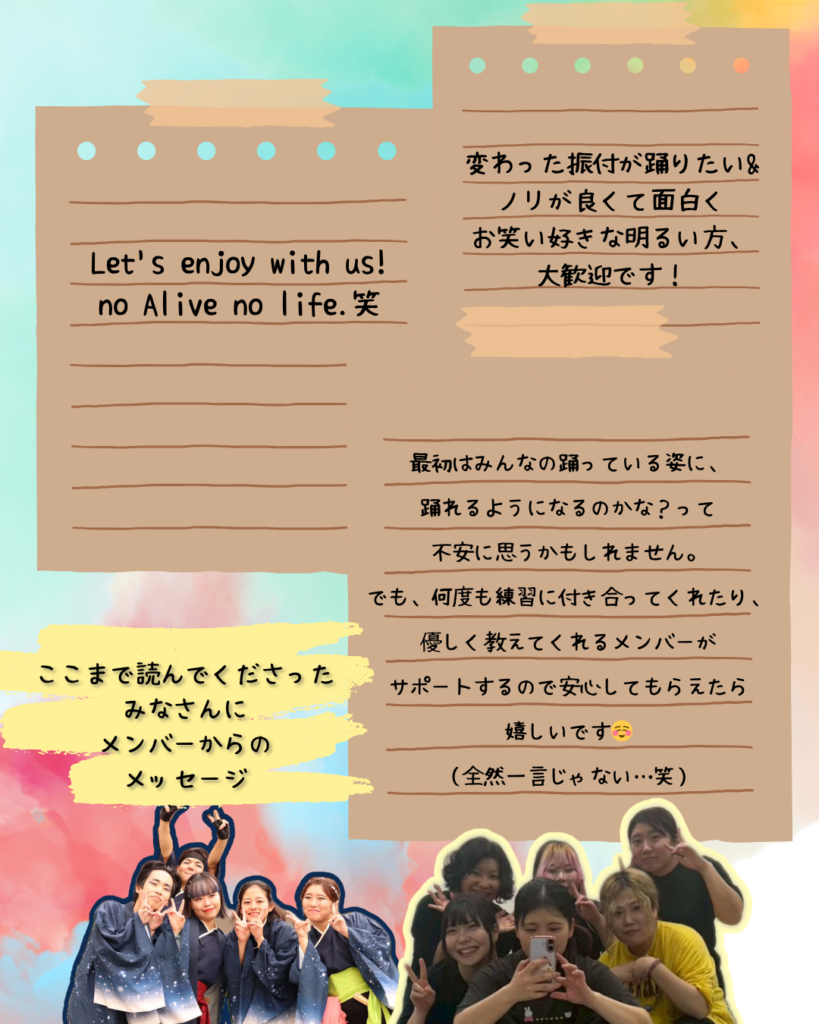 変わった振付が踊りたい&
ノリが良くて面白く
お笑い好きな明るい方、
大歓迎です！
Let's enjoy with us!
no Alive no life.笑
最初はみんなの踊っている姿に、
踊れるようになるのかな？って
不安に思うかもしれません。
でも、何度も練習に付き合ってくれたり、
優しく教えてくれるメンバーが
サポートするので安心してもらえたら
嬉しいです☺️
(全然一言じゃない…笑)
ここまで読んでくださった
みなさんに
メンバーからの
メッセージ